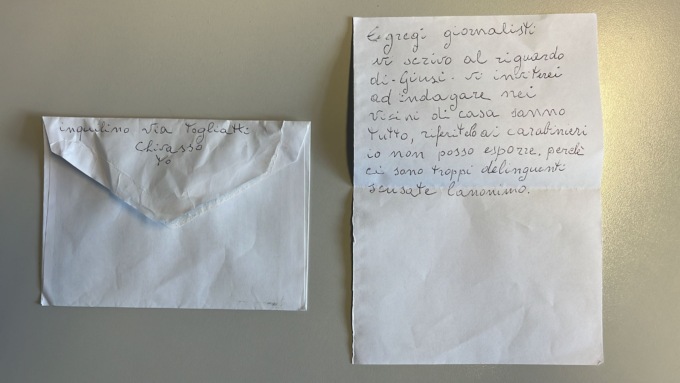 inquilino via Togliatti
Chivasso
To
Egregi giornalisti
vi scrivo al riguardo
di-Giusi. vi inviterei
ad indagare nei
vicini di casa sanno
tutto, riferitelo ai carabinieri
io non posso esporre. perchè
ci sono troppi delinquenti
scusate lanonimo.